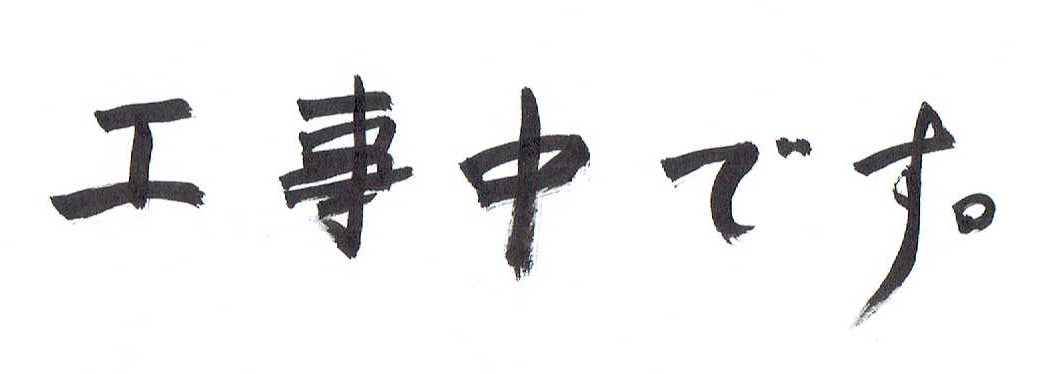 工事中です。